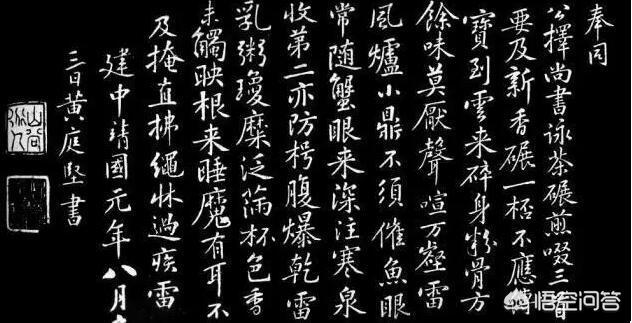 奉同
公擇尚書詠茶碾煎啜三首
要及新香碾一杯不應傳
寶到雲来碎身粉骨方
餘味莫厭聲喧萬壑雷
風爐小鼎不須催魚眼
常随蟹眼来深注寒泉
收第二亦防枵腹爆乾雷
乳粥瓊糜泛滿杯色香
未觸映根来睡魔有耳不
及掩直拂繩牀過疾雷
建中靖國元年八月十
三日黄庭堅書
山谷道人
悟空问答